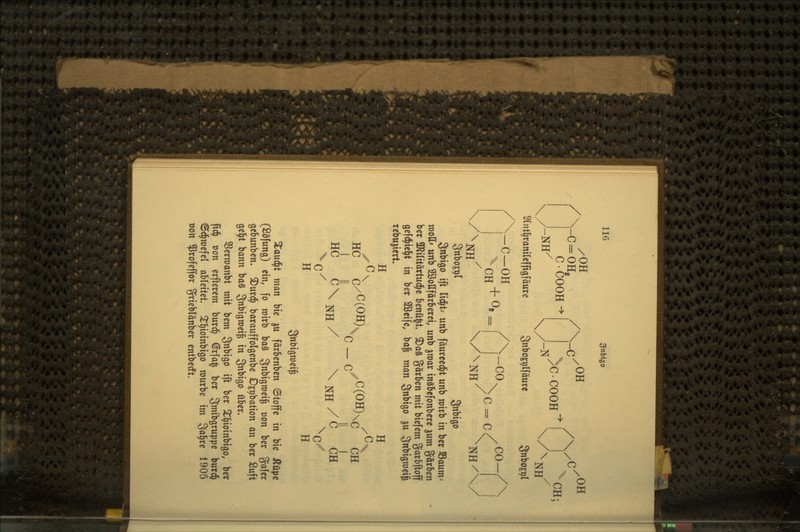 116 Indigo
OH OH OH
C = OH₂ C·COOH → C C·COOH → C CH;
NH N NH
Anthranilessigsäure Indoxylsäure Indoxyl
C—OH CO CO
CH + O₂ = C = C
NH NH NH
Indoxyl Indigo
Indigo ist licht- und säureecht und wird in der Baum-
woll- und Wollfärberei, und zwar insbesondere zum Färben
der Militärtuche benützt. Das Färben mit diesem Farbstoff
geschieht in der Weise, daß man Indigo zu Indigweiß
reduziert.
H H
C C
HC C/C(OH) C(OH)\C CH
C — C
HC C C CH
C NH NH C
H H
Indigweiß
Taucht man die zu färbenden Stoffe in die Küpe
(Lösung) ein, so wird das Indigweiß von der Faser
gebunden. Durch darauffolgende Oxydation an der Luft
geht dann das Indigweiß in Indigo über.
Verwandt mit dem Indigo ist der Thioindigo, der
sich von ersterem durch Ersatz der Imidgruppe durch
Schwefel ableitet. Thioindigo wurde im Jahre 1905
von Professor Friedländer entdeckt.